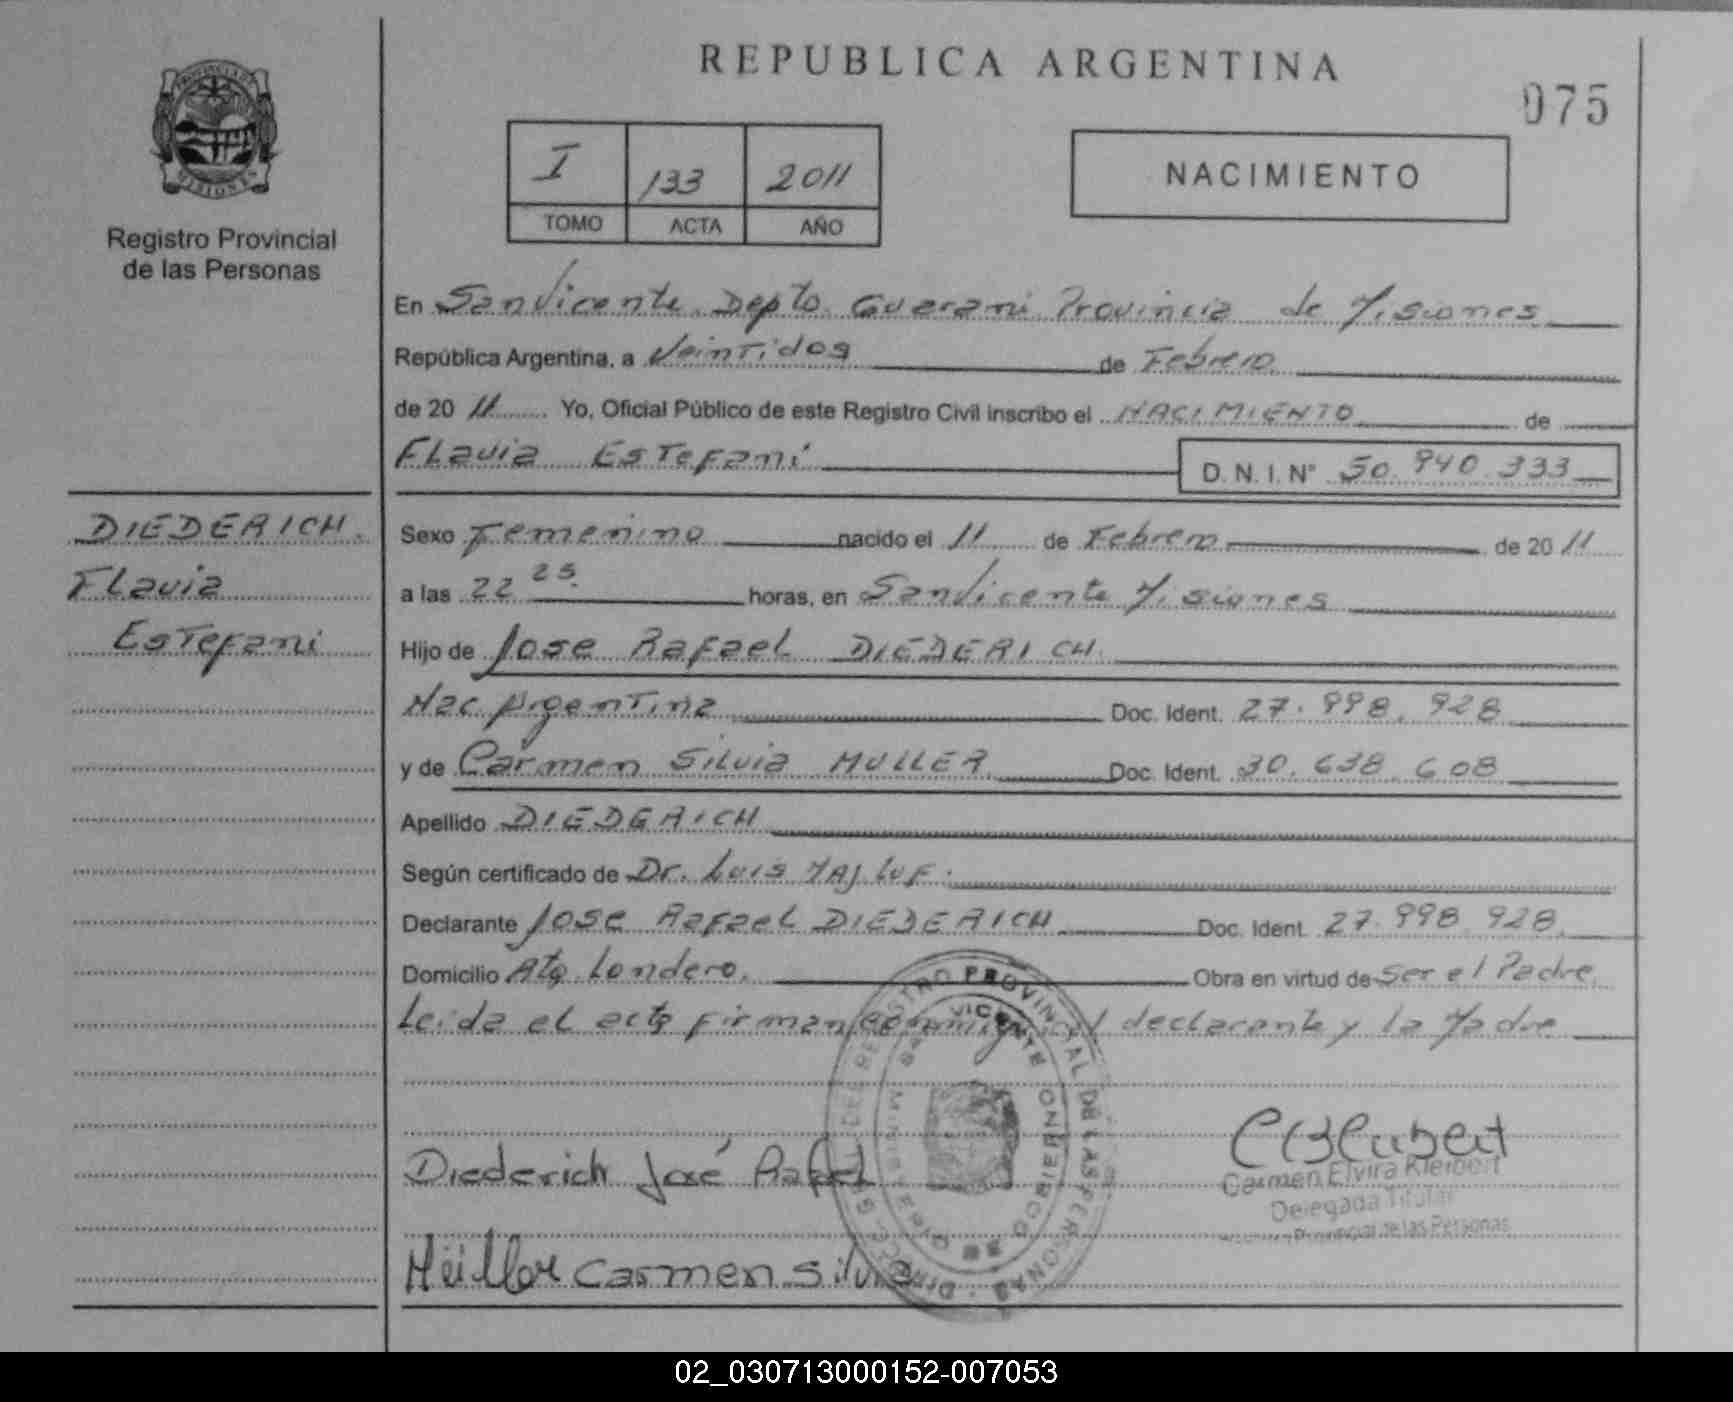 REPUBLICA ARGENTINA
075
PROVINCIA DE MISIONES
Registro Provincial
de las Personas
I 133 2011
TOMO ACTA AÑO
NACIMIENTO
En San Vicente Depto. Guarani Provincia de Misiones
República Argentina, a Veintidos de Febrero
de 20 11 Yo, Oficial Público de este Registro Civil inscribo el NACIMIENTO de
Flavia Estefani D. N. I. N° 50.940.333
DIEDERICH.
Flavia
Estefani
Sexo Femenino nacido el 11 de Febrero de 20 11
a las 22 25. horas, en San Vicente Misiones
Hijo de Jose Rafael DIEDERICH.
Nac. Argentina Doc. Ident. 27.998.928
y de Carmen Silvia MULLER Doc. Ident. 30.638.608
Apellido DIEDERICH
Según certificado de Dr. Luis
Declarante Jose Rafael DIEDERICH Doc. Ident. 27.998.928.
Domicilio Londero. Obra en virtud de Ser el Padre.
Leida el acta firman conmigo el declarante y la Madre
DIRECC. GRAL. DEL REGISTRO PROVINCIAL DE LAS PERSONAS
SAN VICENTE
MINISTERIO DE GOBIERNO
Diederich José Rafael
Carmen Elvira Kleibert
Delegada Titular
Provincial de las Personas
Müller Carmen Silvia
02_030713000152-007053